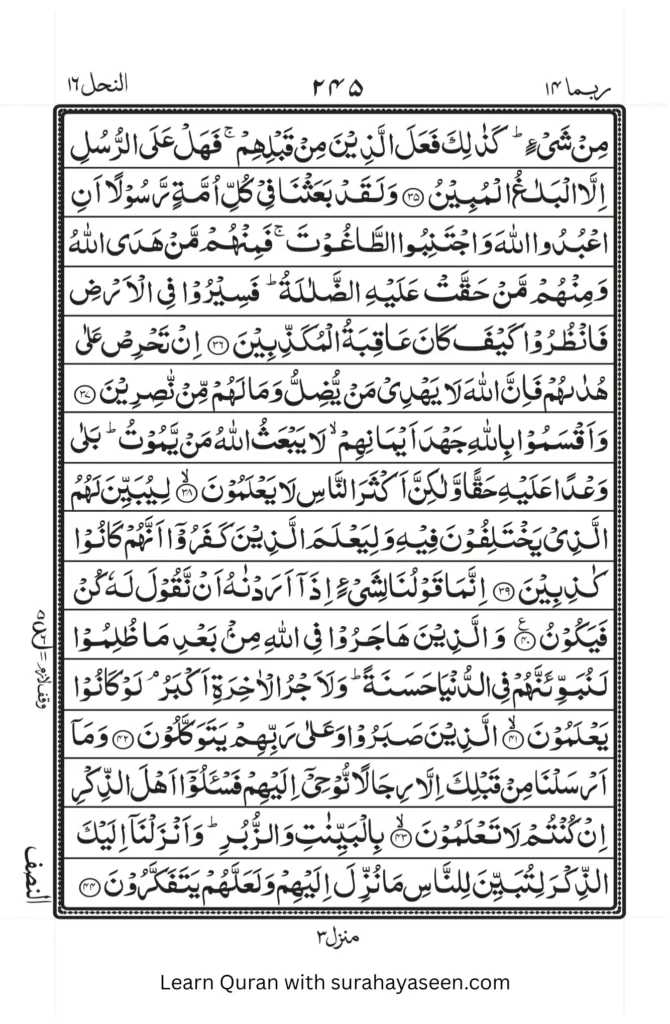 النحل ١٦ ٢٤٥ ربما ١٤
مِنْ شَیْءٍ ؕ كَذٰلِكَ فَعَلَ الَّذِیْنَ مِنْ قَبْلِهِمْ ۚ فَهَلْ عَلَی الرُّسُلِ
اِلَّا الْبَلٰغُ الْمُبِیْنُ ﴿۳۵﴾ وَلَقَدْ بَعَثْنَا فِیْ كُلِّ اُمَّةٍ رَّسُوْلًا اَنِ
اعْبُدُوا اللّٰهَ وَاجْتَنِبُوا الطَّاغُوْتَ ۚ فَمِنْهُمْ مَّنْ هَدَی اللّٰهُ
وَمِنْهُمْ مَّنْ حَقَّتْ عَلَیْهِ الضَّلٰلَةُ ؕ فَسِیْرُوْا فِی الْاَرْضِ
فَانْظُرُوْا كَیْفَ كَانَ عَاقِبَةُ الْمُكَذِّبِیْنَ ﴿۳۶﴾ اِنْ تَحْرِصْ عَلٰی
هُدٰىهُمْ فَاِنَّ اللّٰهَ لَا یَهْدِیْ مَنْ یُّضِلُّ وَمَا لَهُمْ مِّنْ نّٰصِرِیْنَ ﴿۳۷﴾
وَاَقْسَمُوْا بِاللّٰهِ جَهْدَ اَیْمَانِهِمْ ۙ لَا یَبْعَثُ اللّٰهُ مَنْ یَّمُوْتُ ؕ بَلٰی
وَعْدًا عَلَیْهِ حَقًّا وَّلٰكِنَّ اَكْثَرَ النَّاسِ لَا یَعْلَمُوْنَ ﴿۳۸﴾ۙ لِیُبَیِّنَ لَهُمُ
الَّذِیْ یَخْتَلِفُوْنَ فِیْهِ وَلِیَعْلَمَ الَّذِیْنَ كَفَرُوْۤا اَنَّهُمْ كَانُوْا
كٰذِبِیْنَ ﴿۳۹﴾ اِنَّمَا قَوْلُنَا لِشَیْءٍ اِذَاۤ اَرَدْنٰهُ اَنْ نَّقُوْلَ لَهٗ كُنْ
فَیَكُوْنُ ﴿۴۰﴾ع وَالَّذِیْنَ هَاجَرُوْا فِی اللّٰهِ مِنْۢ بَعْدِ مَا ظُلِمُوْا
لَنُبَوِّئَنَّهُمْ فِی الدُّنْیَا حَسَنَةً ؕ وَلَاَجْرُ الْاٰخِرَةِ اَكْبَرُ ۘ لَوْ كَانُوْا
یَعْلَمُوْنَ ﴿۴۱﴾ۙ الَّذِیْنَ صَبَرُوْا وَعَلٰی رَبِّهِمْ یَتَوَكَّلُوْنَ ﴿۴۲﴾ وَمَاۤ
اَرْسَلْنَا مِنْ قَبْلِكَ اِلَّا رِجَالًا نُّوْحِیْۤ اِلَیْهِمْ فَسْـَٔلُوْۤا اَهْلَ الذِّكْرِ
اِنْ كُنْتُمْ لَا تَعْلَمُوْنَ ﴿۴۳﴾ۙ بِالْبَیِّنٰتِ وَالزُّبُرِ ؕ وَاَنْزَلْنَاۤ اِلَیْكَ
الذِّكْرَ لِتُبَیِّنَ لِلنَّاسِ مَا نُزِّلَ اِلَیْهِمْ وَلَعَلَّهُمْ یَتَفَكَّرُوْنَ ﴿۴۴﴾
وقف لازم
النصف
منزل ٣
Learn Quran with surahayaseen.com